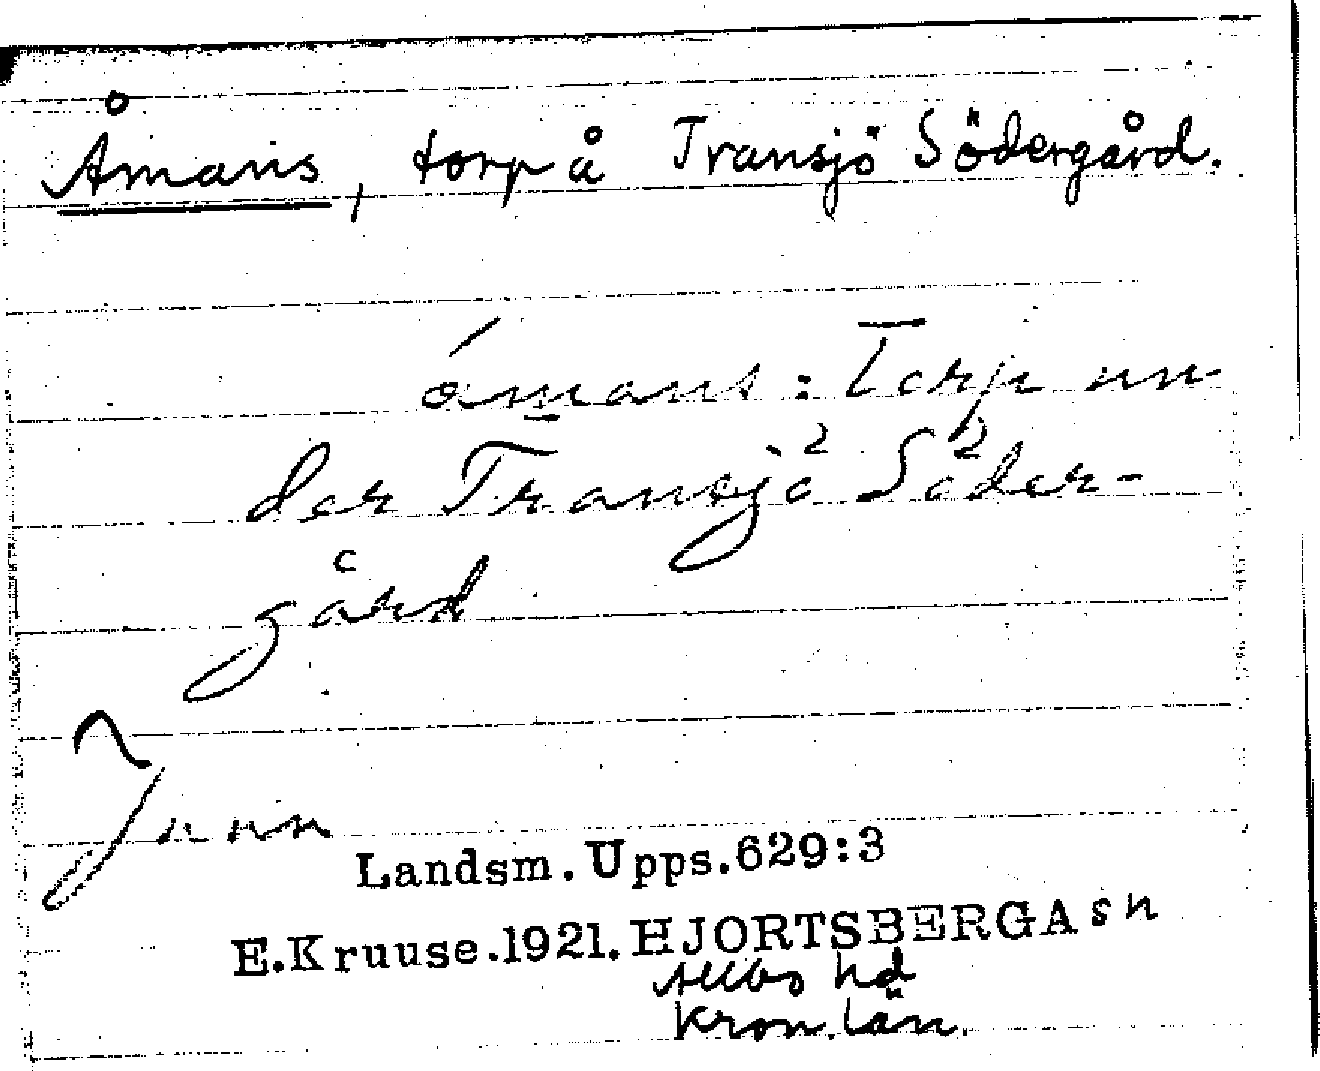 Åmans, torp å Transjö Södergård.
ámans: Torp un-
der Transjö Söder-
gård
Landsm. Upps. 629:3
E. Kruuse. 1921. HJORTSBERGA sn
Allbo hd
Kron. län.